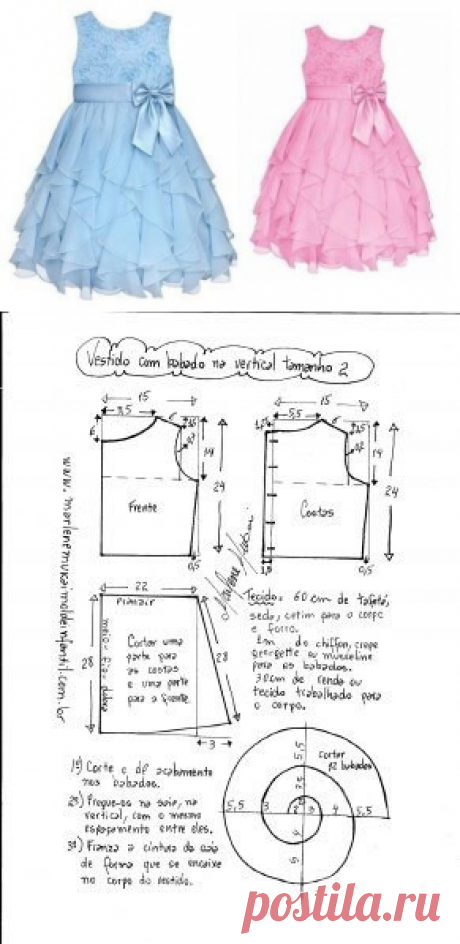 Vestido com babado na vertical tamanho 2
15
5,5
6
14
24
Frente
0,5
15
5,5
14
24
Costas
1,5
0,5
www.marlenemukaimoldeinfantil.com.br
22
Franzir
28
meio - fio - dobra
Cortar uma
parte para
as costas
e uma parte
para a frente.
28
3
Tecido: 60 cm de tafetá,
seda, cetim para o corpo
e forro.
de chiffon, crepe
georgette ou musseline
para os babados.
30cm de renda ou
tecido trabalhado para
o corpo.
1º) Corte e dê acabamento
nos babados.
2º) Pregue-os na saia, na
vertical, com o mesmo
espaçamento entre eles.
3º) Franza a cintura da saia
de forma que se encaixe
no corpo do vestido.
cortar
12 babados
5,5
5,5
3
2
3
4
5,5
postila.ru